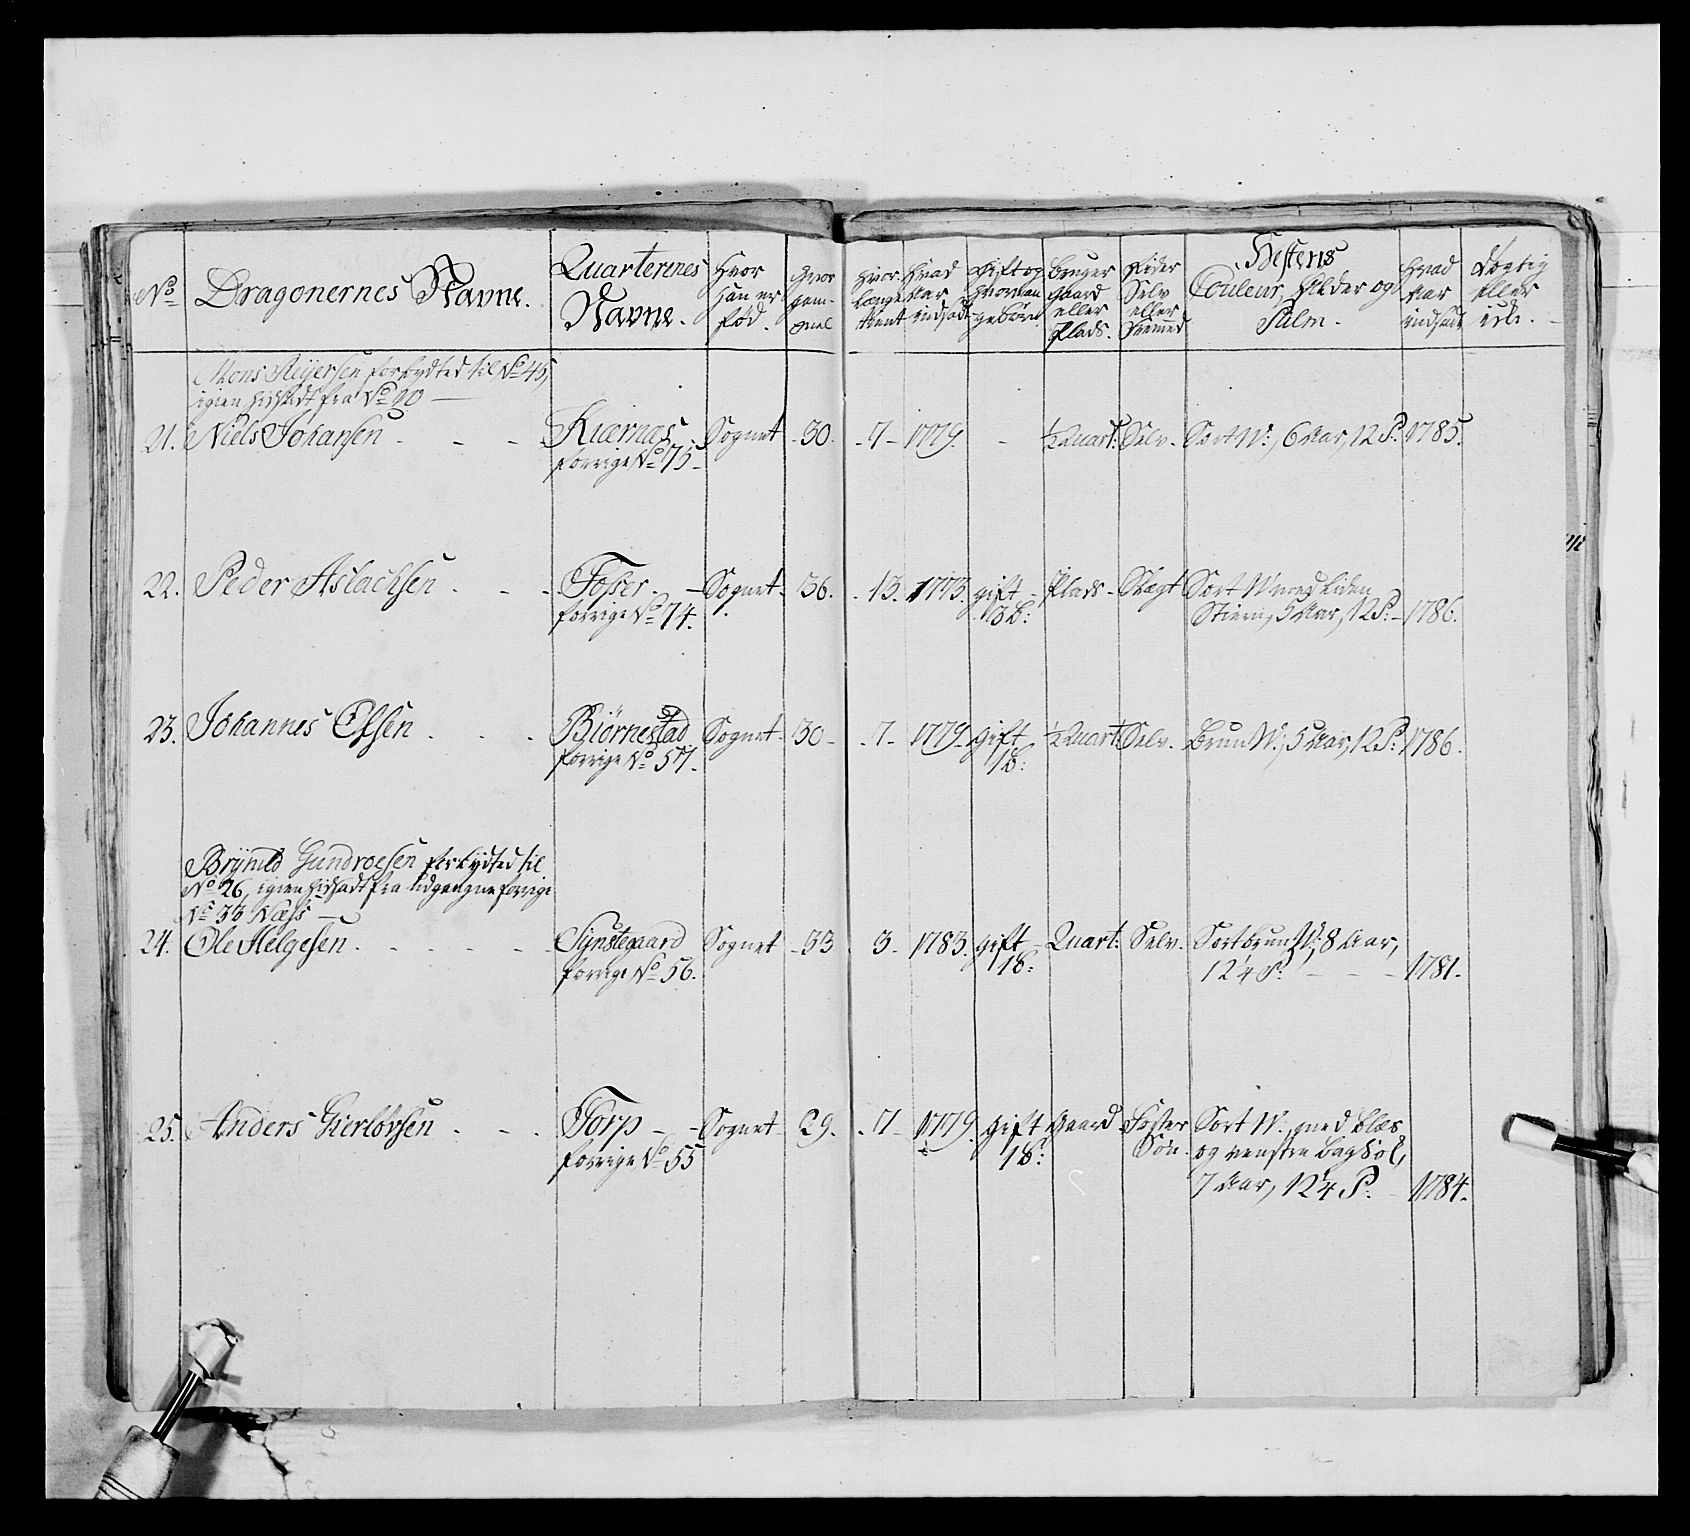 No
Dragonernes Navne.
Quarterenes
Navne.
Hvor
han er
fød.
Hvor
gam-
mel
Hvor
længe
tient
Hvad
Aar
indsadt
Gift og
hvordan
gebørn
Bruger
Gaard
eller
Plads.
Rider
Selv
eller
Fremmed
Hestens
Couleur, Alder og
Palm.
Hvad
Aar
indsadt
Døgtig
eller
ei.
Mons forbydted til No 45,
igien indsadt fra No 90
21. Niels Johansen - - - Kiernæs Sognet - 30. - 7 - 1779. - ½ Quart: Selv. Sort W:, 6 Aar, 12 P: 1785.
forrige No 75 -
22. Peder Aslachsen . - - Fosser. - Sognet - 36. - 13. 1773. gift - Plads - Slægt Sort W med liden
forrige No 74. 3 B: Stiern, 5 Aar, 12 P: - 1786.
23. Johannes Olsen . . . Biørnestad Sognet - 30 - - 7 - 1779. gift ½ Quart: Selv. Brun W:, 5 Aar, 12 P: 1786.
forrige No 57. 1 B:
Brynild Gundroesen forbydted til
No 26, igien indsadt fra udgangne forrige
No 33 Næss -
24. Ole Helgesen. - - - - Synstegaard Sognet - 33 . 3 - 1783. gift - Quart: Selv. Sortbrun W:, 8 Aar,
forrige No 56. 1 B: 12¼ P: - - - 1781.
25. Anders . - . Torp - - Sognet - 29. - 7 - 1779. gift Gaard Foster Sort W:, med blæs
forrige No 55 1 B: Søn - og venstre bag Sok,
7 Aar, 12¼ P: 1784.